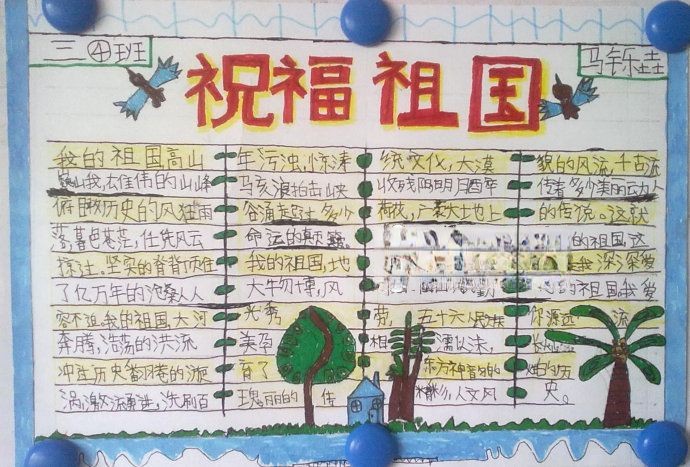 三④班
祝福祖国
我的祖国高山
雄伟的山峰
俯瞰历史的风狂雨
落,暮色苍茫,任凭风云
掠过。坚实的脊背顶住
了亿万年的沧桑人人
容不迫我的祖国,大河
奔腾,浩荡的洪流
冲生历史翻卷的漩
涡,激流勇进,洗刷百
年污浊,惊涛
浪拍击山峡
谷涌起过多少
命运的颠簸。
我的祖国,地
大物博,风
光秀
美孕
育了
瑰丽的传
统文化,大漠
收残阳明月醉
荷花,广袤大地上
五十六个民族
相濡以沫,
东方神韵的
人文风
貌的风流,千古流
传着多少美丽动人
的传说。这就
的祖国,这
是我深深爱
的祖国,我爱
你源远流
的历
史。